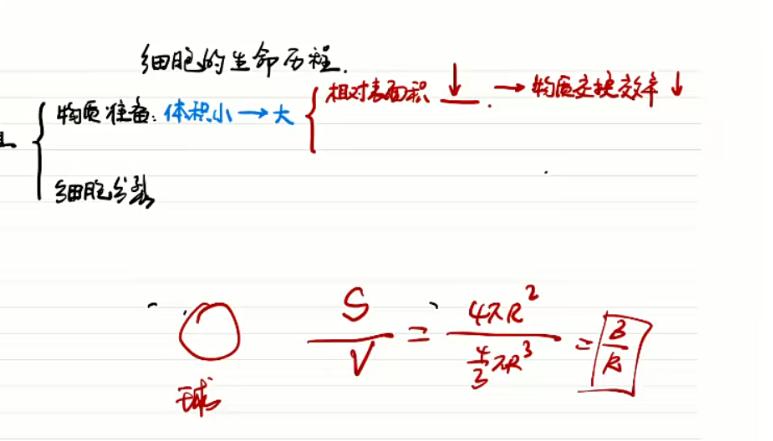 细胞的生命历程.
物质准备: 体积小 → 大
相对表面积 ↓ → 物质交换效率 ↓
细胞分裂
S/V = 4πR²/(4/3 πR³) = 3/R
球